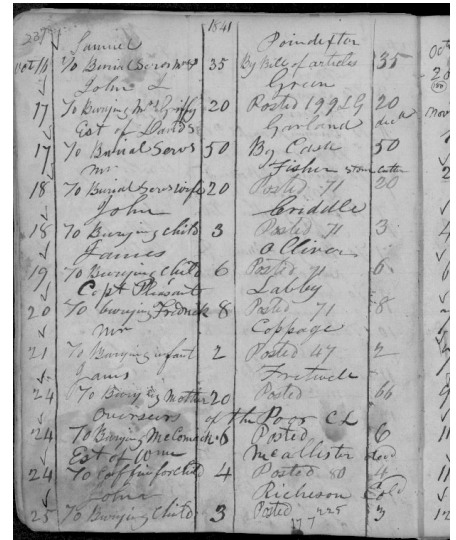 1841
Samuel Poindexter
To Burial Servs 35 By Bill of articles 35
John L Green
17 To Burying Mrs 20 Posted 199 LG 20
Est of David S Garland decd
17 To Burial Servs 50 By Cash 50
Mr Fisher stone cutter
18 To Burial Servs wife 20 Posted 71 20
John Criddle
18 To Burying Child 3 Posted 71 3
James Oliver
19 To Burying Child 6 Posted 71 6
Capt Pleasant Labby
20 To burying Fredrick 8 Posted 71 8
Mr Coppage
21 To Burying infant 2 Posted 47 2
Fretwell
24 To Burying Mother 20 Posted 66
Overseers of the Poor CL
24 To Burying McComack 6 Posted 6
Est of Wm McCallister decd
24 To Coffin for Child 4 Posted 80 4
John Richeson Cold
25 To Burying Child 3 Posted 3
177 225